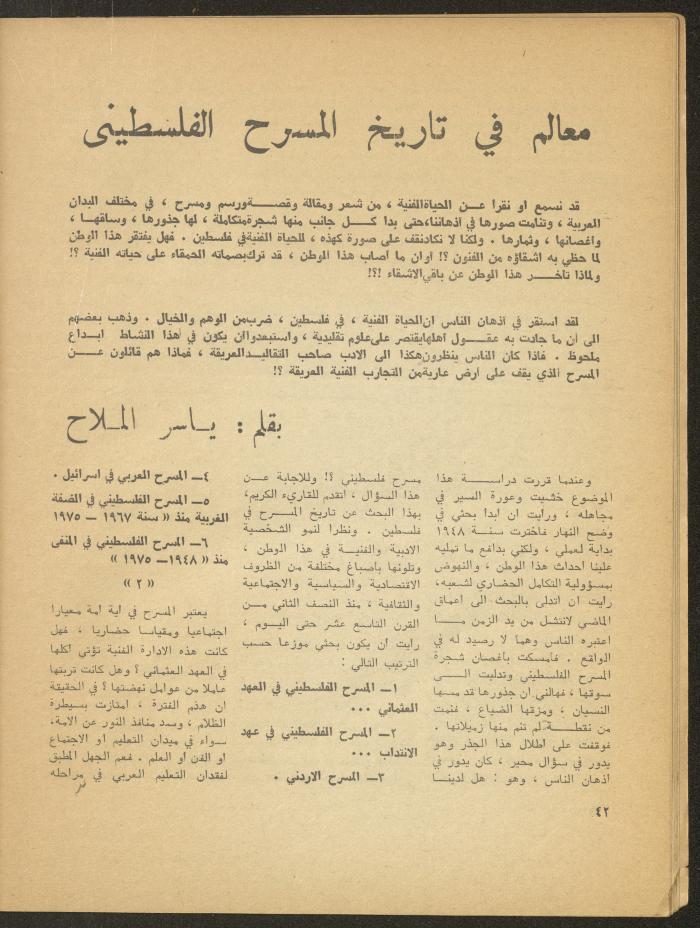 معالم في تاريخ المسرح الفلسطيني
قد نسمع او نقرا عن الحياة الفنية ، من شعر ومقالة وقصة ورسم ومسرح ، في مختلف البدان
العربية ، وتنامت صورها في أذهاننا،حتى بدا كل جانب منها شجرة متكاملة ، لها جذورها ، وساقها ،
واغصانها ، وثمارها . ولكنا لا نكاد نقف على صورة كهذه ، للحياة الفنية في فلسطين . فهل يفتقر هذا الوطن
لما حظي به اشقاؤه من الفنون ؟! او ان ما اصاب هذا الوطن ، قد ترك بصماته الحمقاء على حياته الفنية ؟!
ولماذا تأخر هذا الوطن عن باقي الاشقاء !؟!
لقد استقر في أذهان الناس ان الحياة الفنية ، في فلسطين ، ضرب من الوهم والخيال . وذهب بعضهم
الى أن ما جادت به عقول اهلها يقتصر على علوم تقليدية ، واستبعدوا ان يكون في هذا النشاط ابداع
ملحوظ . فاذا كان الناس ينظرون هكذا الى الادب صاحب التقاليد العريقة ، فماذا هم قائلون عن
المسرح الذي يقف على ارض عارية من التجارب الفنية العريقة ؟!
بقلم : ياسر الملاح
وعندما قررت دراسة هذا
الموضوع خشيت وعورة السير في
مجاهله ، ورايت ان ابدا بحثي في
وضح النهار فاخترت سنة ١٩٤٨
بداية لعملي ، ولكني بدافع ما تمليه
علينا احداث هذا الوطن ، والنهوض
بمسؤولية التكامل الحضاري لشعبه،
رايت ان اتدلى بالبحث الى اعماق
الماضي لانتشل من يد الزمن ما
اعتبره الناس وهما لا رصيد له في
الواقع . فامسكت بأغصان شجرة
المسرح الفلسطيني وتدليت الى
سوقها ، فهالني ان جذورها قد مسها
النسيان ، ومزقها الضياع ، فنمت
من نقطة لم تنم منها زميلاتها .
فوقفت على اطلال هذا الجذر وهو
يدور في سؤال محير ، كان يدور في
أذهان الناس ، وهو : هل لدينا
مسرح فلسطيني ؟! وللاجابة عن
هذا السؤال ، اتقدم للقاريء الكريم،
بهذا البحث عن تاريخ المسرح في
فلسطين . ونظرا لنمو الشخصية
الادبية والفنية في هذا الوطن ،
وتلونها بأصباغ مختلفة من الظروف
الاقتصادية والسياسية والاجتماعية
والثقافية ، منذ النصف الثاني من
القرن التاسع عشر حتى اليوم ،
رايت أن يكون بحثي موزعا حسب
الترتيب التالي :
١— المسرح الفلسطيني في العهد
العثماني ...
٢— المسرح الفلسطيني في عهد
الانتداب ...
٣— المسرح الاردني .
٤— المسرح العربي في اسرائيل .
٥— المسرح الفلسطيني في الضفة
الغربية منذ « سنة ١٩٦٧ — ١٩٧٥
٦— المسرح الفلسطيني في المنفى
منذ « ١٩٤٨— ١٩٧٥ »
« ٢ »
يعتبر المسرح في اية امة معيارا
اجتماعيا ومقياسا حضاريا ، فهل
كانت هذه الادارة الفنية تؤتي اكلها
في العهد العثماني ؟ وهل كانت تربتها
عاملا من عوامل نهضتها ؟ في الحقيقة
ان هذه الفترة ، امتازت بسيطرة
الظلام ، وسد منافذ النور عن الامة،
سواء في ميدان التعليم او الاجتماع
او الفن او العلم . فعم الجهل المطبق
لفقدان التعليم العربي في مراحله
٤٢